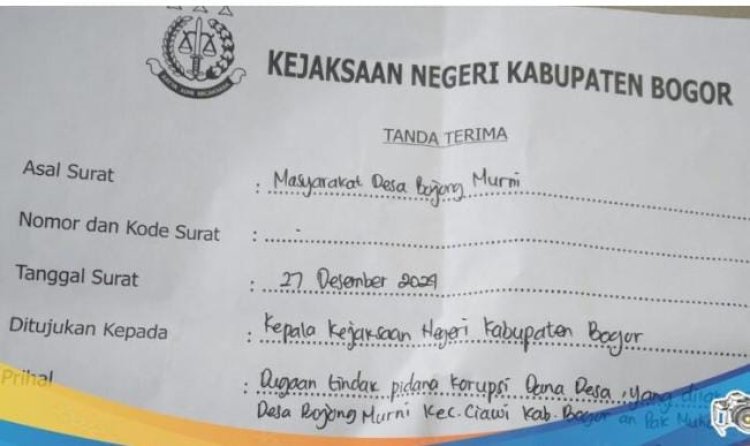 KEJAKSAAN NEGERI KABUPATEN BOGOR
TANDA TERIMA
Asal Surat : Masyarakat Desa Bojong Murni
Nomor dan Kode Surat : -
Tanggal Surat : 27 Desember 2024
Ditujukan Kepada : Kepala Kejaksaan Negeri Kabupaten Bogor
Prihal : Dugaan tindak pidana korupsi Dana Desa, yang
Desa Bojong Murni Kec. Ciawi Kab. Bogor an Pak